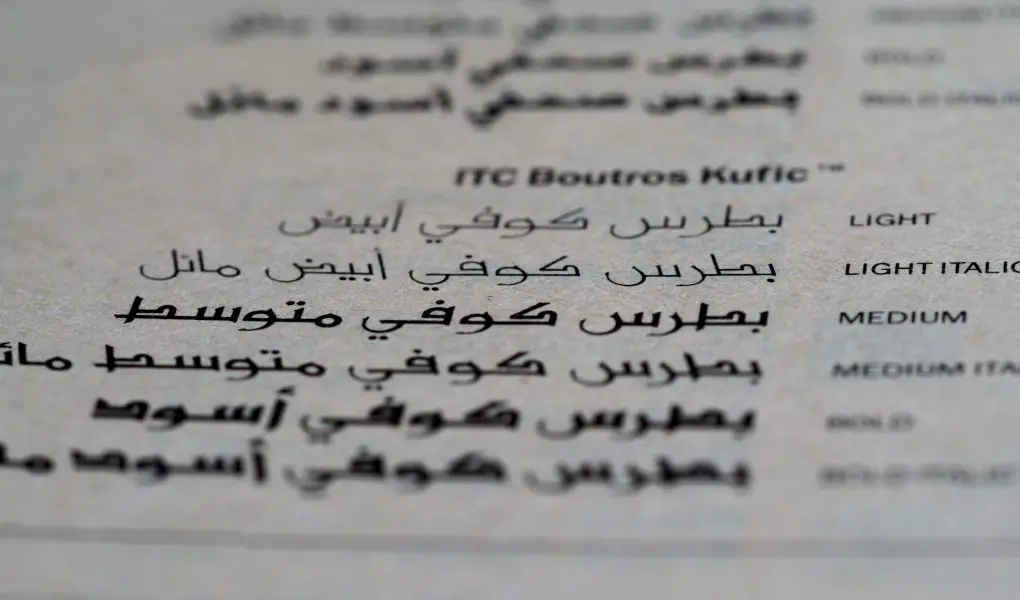 بطرس صحفي أسود BOLD
بطرس صحفي أسود مائل BOLD ITALIC
ITC Boutros Kufic™
بطرس كوفي أبيض LIGHT
بطرس كوفي أبيض مائل LIGHT ITALIC
بطرس كوفي متوسط MEDIUM
بطرس كوفي متوسط MEDIUM
بطرس كوفي أسود BOLD
بطرس كوفي أسود BOLD ITALIC